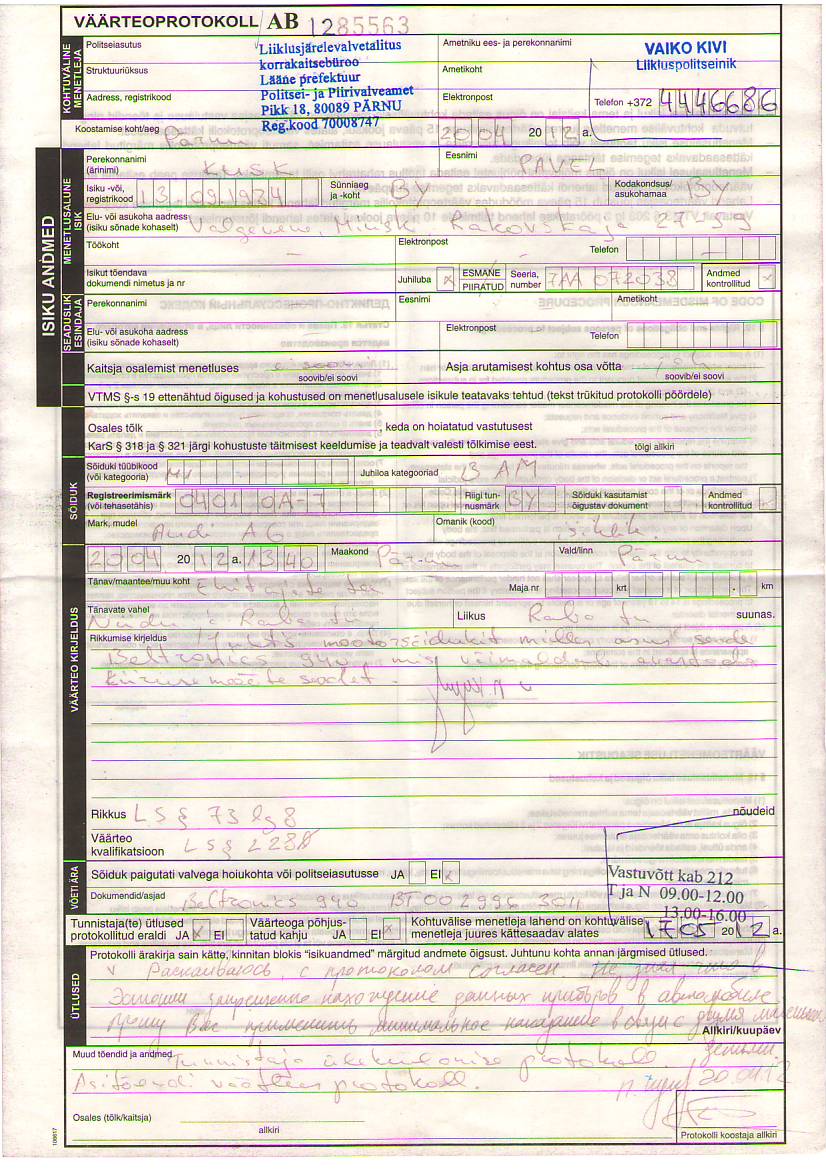 VÄÄRTEOPROTOKOLL AB 1285563
KOHTUVÄLINE MENETLEJA
Politseiasutus
Struktuuriüksus
Aadress, registrikood
Liiklusjärelevalvetalitus
korrakaitsebüroo
Lääne prefektuur
Politsei- ja Piirivalveamet
Pikk 18, 80089 PÄRNU
Reg.kood 70008747
Ametniku ees- ja perekonnanimi
VAIKO KIVI
Ametikoht
Liikluspolitseinik
Elektronpost
Telefon +372 4446686
Koostamise koht/aeg Pärnu 2004 2012 a.
ISIKU ANDMED
MENETLUSALUNE ISIK
Perekonnanimi (ärinimi) KUSK Eesnimi PAVEL
Isiku -või, registrikood 13.09.1984 Sünniaeg ja -koht BY Kodakondsus/ asukohamaa BY
Elu- või asukoha aadress (isiku sõnade kohaselt) Valgevene, Minsk Rakovskaja 27-39
Töökoht — Elektronpost Telefon —
Isikut tõendava dokumendi nimetus ja nr Juhiluba x ESMANE PIIRATUD Seeria, number 7AA 072038 Andmed kontrollitud x
SEADUSLIK ESINDAJA
Perekonnanimi Eesnimi Ametikoht
Elu- või asukoha aadress (isiku sõnade kohaselt) Elektronpost Telefon
Kaitsja osalemist menetluses ei soovi Asja arutamisest kohtus osa võtta
soovib/ei soovi soovib/ei soovi
VTMS §-s 19 ettenähtud õigused ja kohustused on menetlusalusele isikule teatavaks tehtud (tekst trükitud protokolli pöördele)
Osales tõlk , keda on hoiatatud vastutusest
KarS § 318 ja § 321 järgi kohustuste täitmisest keeldumise ja teadvalt valesti tõlkimise eest. tõlgi allkiri
SÕIDUK
Sõiduki tüübikood (või kategooria) M1 Juhiloa kategooriad B AM
Registreerimismärk (või tehasetähis) 0401 OA-7 Riigi tunnusmärk BY Sõiduki kasutamist õigustav dokument Andmed kontrollitud
Mark, mudel Audi A6 Omanik (kood) isiklik.
VÄÄRTEO KIRJELDUS
2004 2012 a. 1340 Maakond Pärnu Vald/linn Pärnu
Tänav/maantee/muu koht Ehitajate tee Maja nr krt . km
Tänavate vahel Niidu ja Raba tn Liikus Raba tn suunas.
Rikkumise kirjeldus Juhtis mootorsõidukit milles asus seade
Beltronics 940, mis võimaldab avastada
kiirusemõõte seadet.
Rikkus LS § 73 lg 8
nõudeid
Väärteo kvalifikatsioon LS § 228
VÕETI ÄRA
Sõiduk paigutati valvega hoiukohta või politseiasutusse JA EI x
Dokumendid/asjad Beltronics 940 BT 002996 3011
Vastuvõtt kab 212
T ja N 09.00-12.00
13.00-16.00
Tunnistaja(te) ütlused protokollitud eraldi JA x EI Väärteoga põhjustatud kahju JA EI x Kohtuvälise menetleja lahend on kohtuvälise menetleja juures kättesaadav alates 1705 2012 a.
ÜTLUSED
Protokolli ärakirja sain kätte, kinnitan blokis "isikuandmed" märgitud andmete õigsust. Juhtunu kohta annan järgmised ütlused.
v Раскаиваюсь, с протоколом согласен. Не знал, что в
Эстонии запрещение нахождение данных приборов в автомобиле
Прошу Вас применить минимальное наказание в связи с двумя маленьк.
детьми.
Allkiri/kuupäev
20.04.12
Muud tõendid ja andmed Tunnistaja ülekuulamise protokoll.
Asitõendi vaatlus protokoll.
Osales (tõlk/kaitsja)
allkiri
Protokolli koostaja allkiri